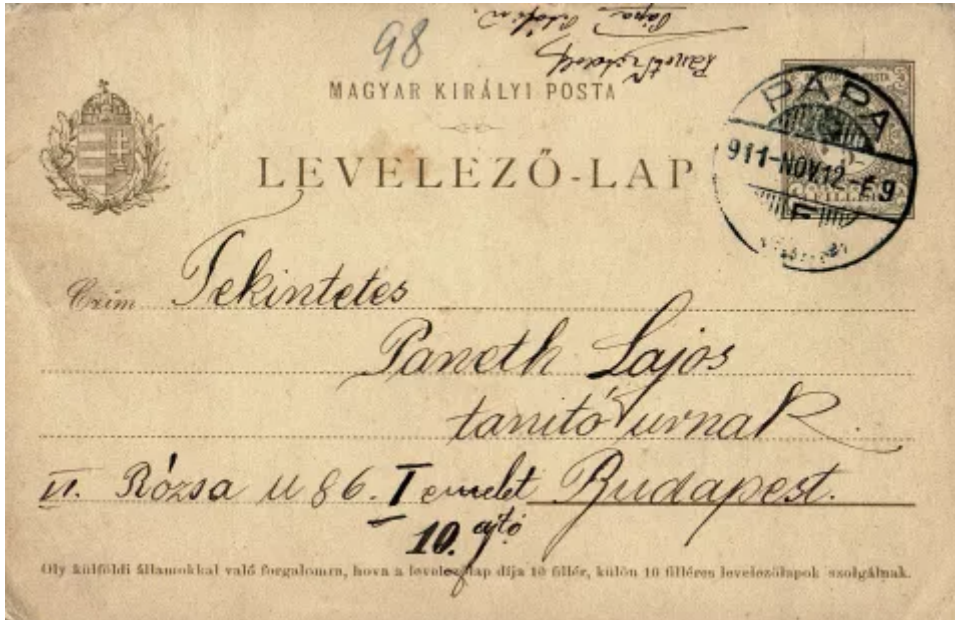 98
MAGYAR KIRÁLYI POSTA
LEVELEZŐ-LAP
PÁPA
911-NOV.12-É9
F
Czím Tekintetes
Paneth Lajos
tanító urnak
VI. Rózsa u 86. I emelet Budapest.
10. ajtó
Oly külföldi államokkal való forgalomra, hova a levelezőlap díja 10 fillér, külön 10 filléres levelezőlapok szolgálnak.